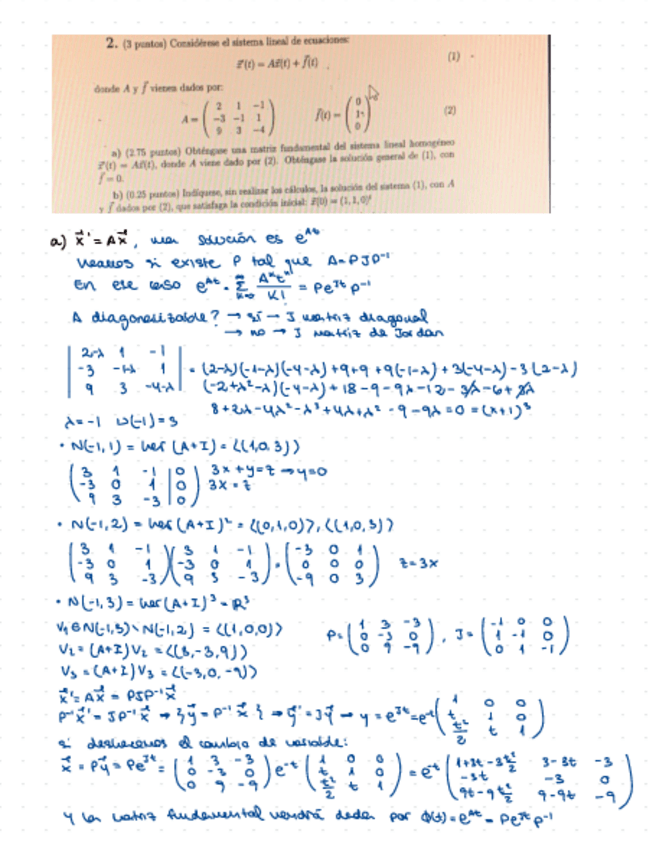 2. (3 puntos) Considérese el sistema lineal de ecuaciones:
x⃗'(t) = Ax⃗(t) + f⃗(t) (1)
donde A y f⃗ vienen dados por:
A = ( 2 1 -1 ; -3 -1 1 ; 9 3 -4 ) f⃗(t) = ( 0 ; 1 ; 0 ) (2)
a) (2.75 puntos) Obténgase una matriz fundamental del sistema lineal homogéneo
x⃗'(t) = Ax⃗(t), donde A viene dado por (2). Obténgase la solución general de (1), con
f⃗ = 0.
b) (0.25 puntos) Indíquese, sin realizar los cálculos, la solución del sistema (1), con A
y f⃗ dados por (2), que satisfaga la condición inicial: x⃗(0) = (1, 1, 0)ᵗ
a) x⃗' = Ax⃗, una solución es e^At
Veamos si existe P tal que A=PJP⁻¹
En ese caso e^At = Σ A^k t^k / K! = Pe^Jt P⁻¹
A diagonalizable? → sí → J matriz diagonal
→ no → J matriz de Jordan
| 2-λ 1 -1 ; -3 -1-λ 1 ; 9 3 -4-λ | = (2-λ)(-1-λ)(-4-λ)+9+9+9(-1-λ)+3(-4-λ)-3(2-λ)
(-2+λ²-λ)(-4-λ)+18-9-9λ-12-3λ-6+3λ
8+2λ-4λ²-λ³+4λ+λ²-9-9λ=0=(x+1)³
λ=-1 ω(-1)=3
• N(-1,1) = ker(A+I) = ⟨(1,0,3)⟩
( 3 1 -1 | 0 ; -3 0 1 | 0 ; 9 3 -3 | 0 ) 3x+y=z → y=0
3x=z
• N(-1,2) = ker(A+I)² = ⟨(0,1,0)⟩, ⟨(1,0,3)⟩
( 3 1 -1 ; -3 0 1 ; 9 3 -3 )( 3 1 -1 ; -3 0 1 ; 9 3 -3 ) = ( -3 0 1 ; 0 0 0 ; -9 0 3 ) z=3x
• N(-1,3) = ker(A+I)³ = ℝ³
V₁∈N(-1,3)∖N(-1,2) = ⟨(1,0,0)⟩
V₂ = (A+I)V₂ = ⟨(3,-3,9)⟩
V₃ = (A+I)V₃ = ⟨(-3,0,-9)⟩
P=( 1 3 -3 ; 0 -3 0 ; 0 9 -9 ), J=( -1 0 0 ; 1 -1 0 ; 0 1 -1 )
x⃗'=Ax⃗ = PJP⁻¹x⃗
P⁻¹x⃗' = JP⁻¹x⃗ → {y⃗=P⁻¹x⃗} → y⃗'=Jy⃗ → y=e^Jt=e^-t( 1 0 0 ; t 1 0 ; t²/2 t 1 )
si deshacemos el cambio de variable:
x⃗=Py⃗=Pe^Jt=( 1 3 -3 ; 0 -3 0 ; 0 9 -9 )e^-t( 1 0 0 ; t 1 0 ; t²/2 t 1 )=e^-t( 1+3t-3t²/2 3-3t -3 ; -3t -3 0 ; 9t-9t²/2 9-9t -9 )
Y la matriz fundamental vendrá dada por Φ(t)=e^At = Pe^Jt P⁻¹